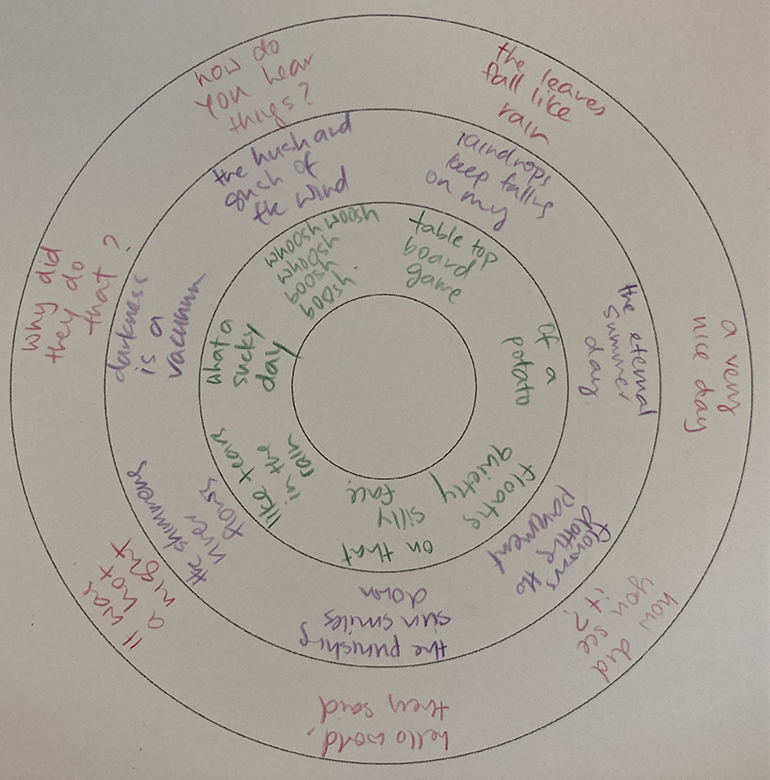 how do
you hear
things?
the leaves
fall like
rain
a very
nice day
how did
you see
it?
hello world,
they said
it was
a hot
night
why did
they do
that?
the hush and
gush of
the wind
raindrops
keep falling
on my
the eternal
summer
day
flowers
pavement
the punishing
sun smiles
down
the shimmering
river
flows
darkness
is a
vacuum
whoosh woosh
whoosh
boosh
goosh.
table top
board
game
of a
potato
floats
quietly
on that
silly
face
like tears
in the
rain
what a
sucky
day